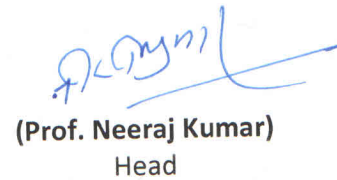 (Prof. Neeraj Kumar)
Head